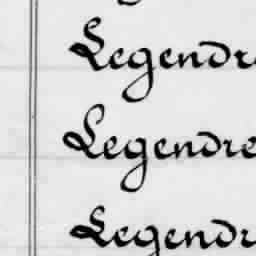 Legendre
Legendre
Legendr